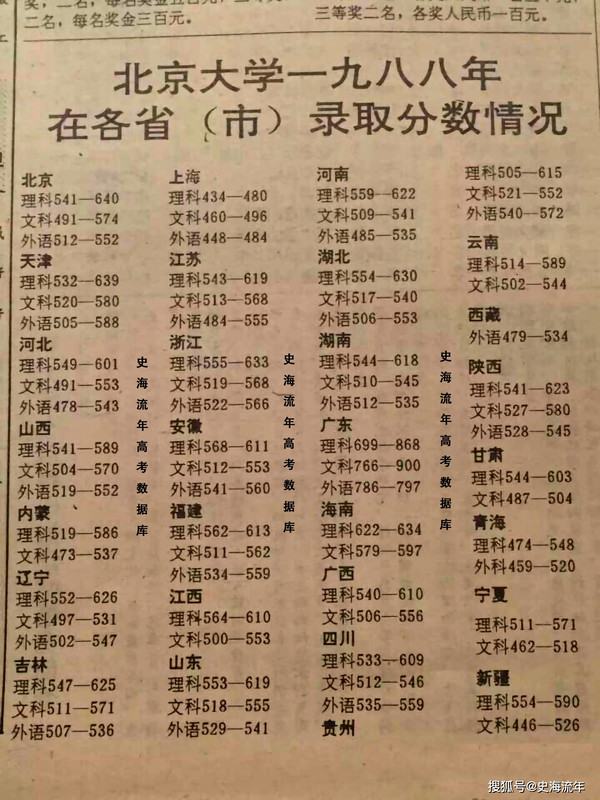 二名，每名奖金三百元。
三等奖二名，各奖人民币一百元。
北京大学一九八八年
在各省（市）录取分数情况
北京
理科541—640
文科491—574
外语512—552
天津
理科532—639
文科520—580
外语505—588
河北
理科549—601
文科491—553
外语478—543
山西
理科541—589
文科504—570
外语519—552
内蒙
理科519—586
文科473—537
辽宁
理科552—626
文科497—531
外语502—547
吉林
理科547—625
文科511—571
外语507—536
上海
理科434—480
文科460—496
外语448—484
江苏
理科543—619
文科513—568
外语484—555
浙江
理科555—633
文科519—568
外语522—566
安徽
理科568—611
文科512—553
外语541—560
福建
理科562—613
文科511—562
外语534—559
江西
理科564—610
文科500—553
山东
理科553—619
文科518—555
外语529—541
河南
理科559—622
文科509—541
外语485—535
湖北
理科554—630
文科517—540
外语506—553
湖南
理科544—618
文科510—545
外语512—535
广东
理科699—868
文科766—900
外语786—797
海南
理科622—634
文科579—597
广西
理科540—610
文科506—556
四川
理科533—609
文科512—546
外语535—559
贵州
理科505—615
文科521—552
外语540—572
云南
理科514—589
文科502—544
西藏
外语479—534
陕西
理科541—623
文科527—580
外语528—545
甘肃
理科544—603
文科487—504
青海
理科474—548
外科459—520
宁夏
理科511—571
文科462—518
新疆
理科554—590
文科446—526
史海流年高考数据库
史海流年高考数据库
史海流年高考数据库
搜狐号@史海流年